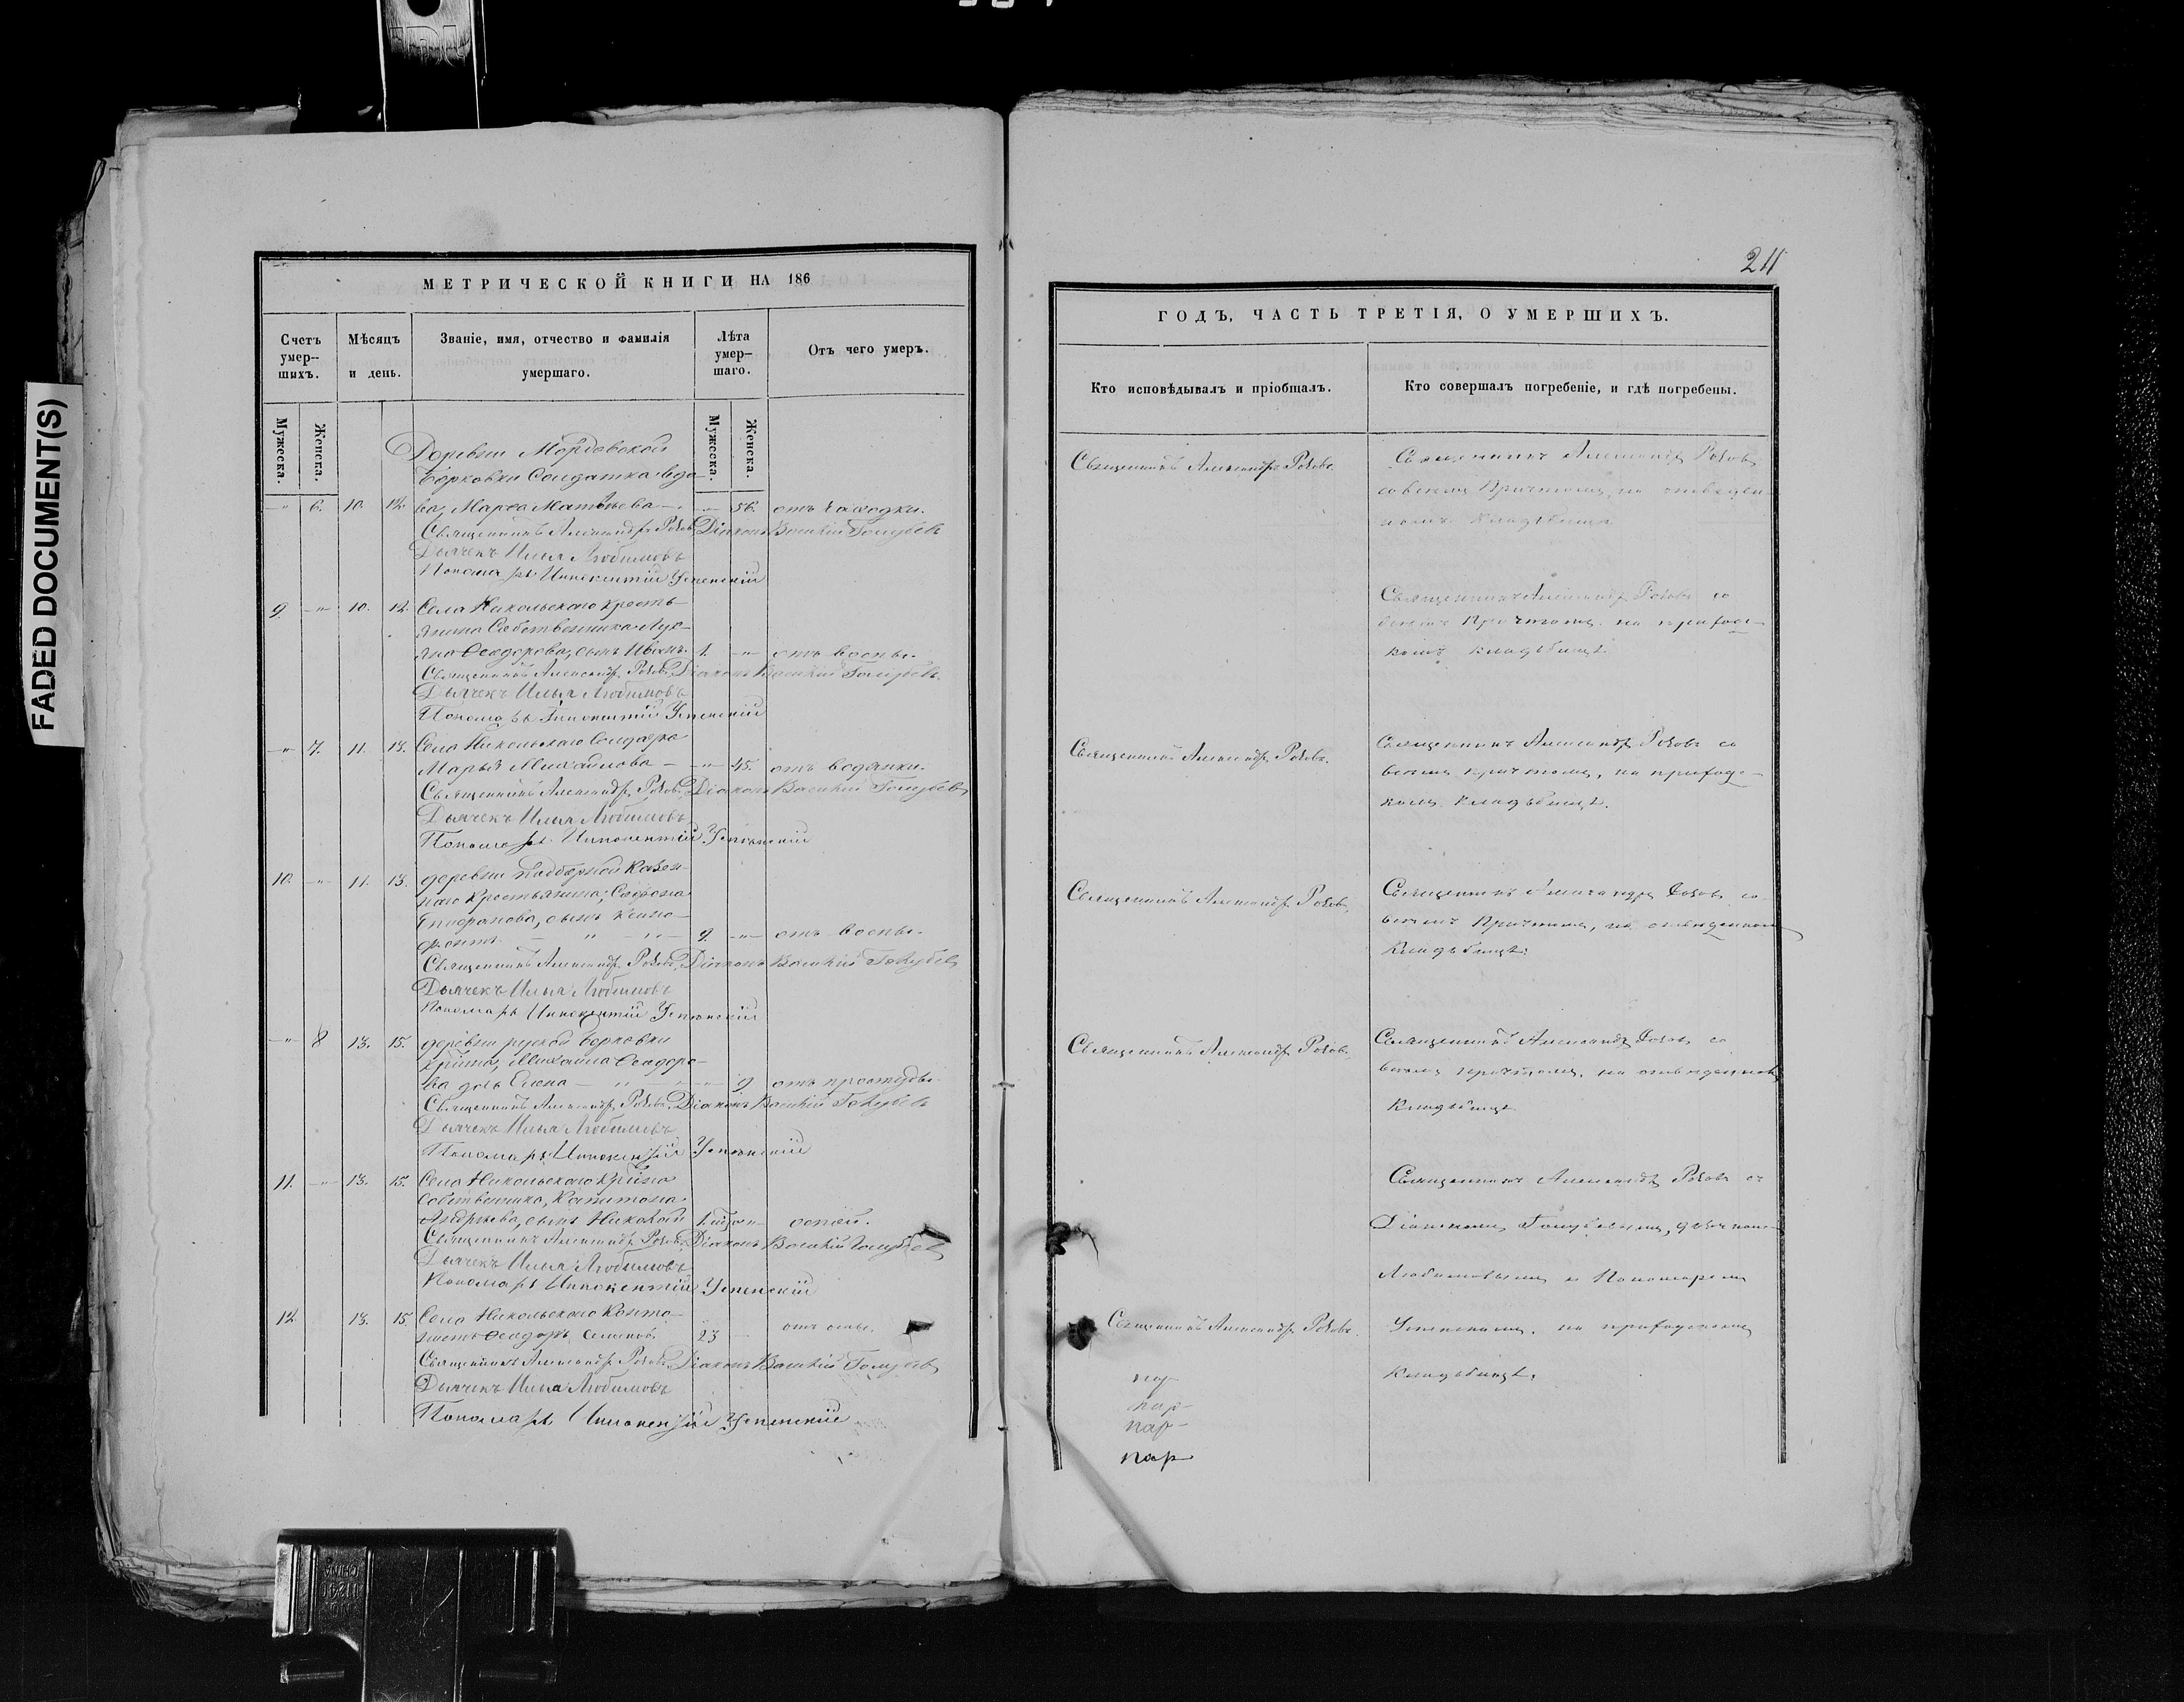 FADED DOCUMENT(S)
МЕТРИЧЕСКОЙ КНИГИ НА 186
Счетъ умер-шихъ.
Мѣсяцъ и день.
Званіе, имя, отчество и фамилія умершаго.
Лѣта умер-шаго.
Отъ чего умеръ.
Мужеска.
Женска.
Мужеска.
Женска.
Деревни Мордовской
Борковки Солдатка вдо-
-"- 6. 10. 12. ва, Марѳа Матвѣева -"- 56. отъ чахотки.
Священникъ Александръ Роковъ Діаконъ Василій Голубевъ
Дьячекъ Илья Любимовъ
Пономарь Иннокентій Успенскій
9. -"- 10. 12. Села Никольскаго кресть-
янина Собственника Лук-
яна Ѳеодорова, сынъ Иванъ. 1. -"- отъ воспы.
Священникъ Александръ Роковъ Діаконъ Василій Голубевъ.
Дьячекъ Илья Любимовъ
Пономарь Иннокентій Успенскій
-"- 7. 11. 13. Села Никольскаго Солдатка
Марья Михайлова -"- 45. отъ водянки.
Священникъ Александръ Роковъ Діаконъ Василій Голубевъ
Дьячекъ Илья Любимовъ
Пономарь Иннокентій Успенскій
10. -"- 11. 13. деревни Подборной Казен-
наго Крестьянина, Софона
Епифанова, сынъ Ксено-
фонтъ - " - " - 9. -"- отъ воспы.
Священникъ Александръ Роковъ, Діаконъ Василій Голубевъ
Дьячекъ Илья Любимовъ
Пономарь Иннокентій Успенскій
-"- 8 13. 15. деревни руской Борковки
крѣтина, Михаила Ѳеодоро-
ва дочь Елена - " - " -"- 9 отъ простуды.
Священникъ Александръ Роковъ, Діаконъ Василій Голубевъ
Дьячекъ Илья Любимовъ
Пономарь Иннокентій Успенскій
11. -"- 13. 15. Села Никольскаго крѣтина
Собственника, Капитона
Андреева, сынъ Николай оспой.
Священникъ Александръ Роковъ, Діаконъ Василій Голубевъ
Дьячекъ Илья Любимовъ
Пономарь Иннокентій Успенскій
12 13. 15. Села Никольскаго Канто-
нистъ Ѳеодоръ 23 - отъ оспы.
Священникъ Александръ Роковъ, Діаконъ Василій Голубевъ
Дьячекъ Илья Любимовъ
Пономарь Иннокентій Успенскій
211
ГОДЪ, ЧАСТЬ ТРЕТІЯ, О УМЕРШИХЪ.
Кто исповѣдывалъ и пріобщалъ.
Кто совершалъ погребеніе, и гдѣ погребены.
Священникъ Александръ Роковъ.
Священникъ Александръ Роковъ
со всемъ Причтомъ, на отведен-
номъ Кладбищѣ
Священникъ Александръ Роковъ со
всемъ Причтомъ на приходс-
комъ кладбищѣ.
Священникъ Александръ Роковъ.
Священникъ Александръ Роковъ со
всемъ причтомъ, на приходс-
комъ кладбищѣ.
Священникъ Александръ Роковъ,
Священникъ Александръ Роковъ со
всемъ Причтомъ, на отведенномъ
Кладбищѣ.
Священникъ Александръ Роковъ.
Священникъ Александръ Роковъ со
всемъ причтомъ, на отведенномъ
Кладбищѣ
Священникъ Александръ Роковъ съ
Діакономъ Голубевымъ, дьячкомъ
Любимовымъ и Пономаремъ
Священникъ Александръ Роковъ.
Успенскимъ, на приходскомъ
Кладбищѣ.
пар-
пар-
пар